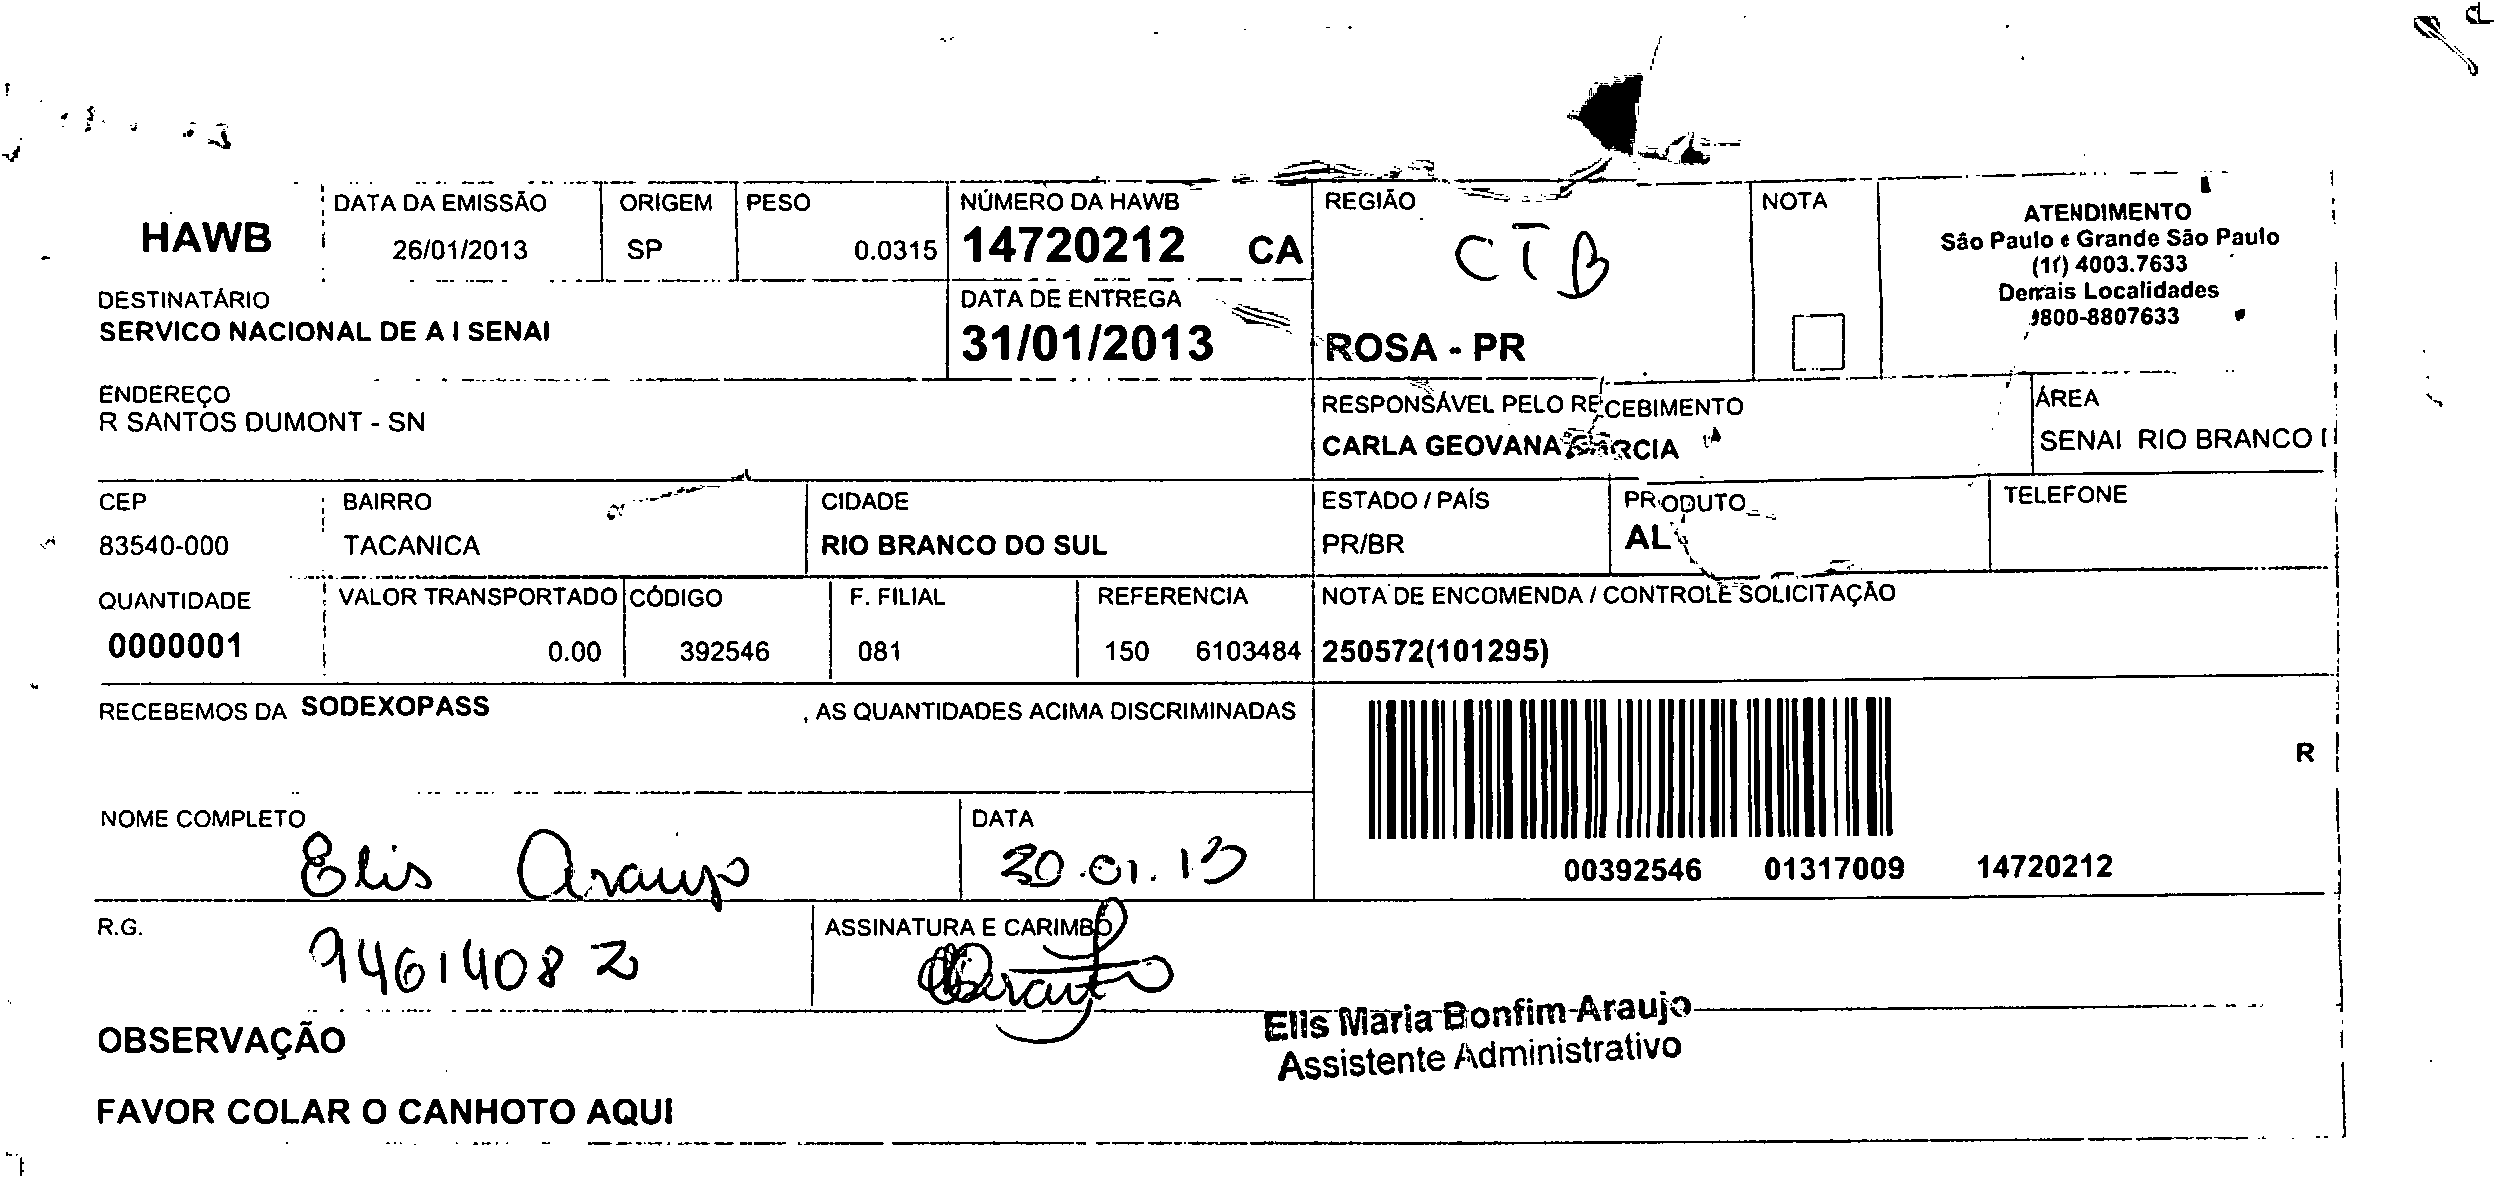 HAWB
DATA DA EMISSÃO
26/01/2013
ORIGEM
SP
PESO
0.0315
NÚMERO DA HAWB
14720212 CA
REGIÃO
CTB
ROSA - PR
NOTA
ATENDIMENTO
São Paulo e Grande São Paulo
(11) 4003.7633
Demais Localidades
0800-8807633
DESTINATÁRIO
SERVICO NACIONAL DE A I SENAI
DATA DE ENTREGA
31/01/2013
ENDEREÇO
R SANTOS DUMONT - SN
RESPONSÁVEL PELO RECEBIMENTO
CARLA GEOVANA GARCIA
ÁREA
SENAI RIO BRANCO
CEP
83540-000
BAIRRO
TACANICA
CIDADE
RIO BRANCO DO SUL
ESTADO / PAÍS
PR/BR
PRODUTO
AL
TELEFONE
QUANTIDADE
0000001
VALOR TRANSPORTADO
0.00
CÓDIGO
392546
F. FILIAL
081
REFERENCIA
150 6103484
NOTA DE ENCOMENDA / CONTROLE SOLICITAÇÃO
250572(101295)
RECEBEMOS DA SODEXOPASS , AS QUANTIDADES ACIMA DISCRIMINADAS
R
00392546 01317009 14720212
NOME COMPLETO
Elis Araujo
DATA
30.01.13
R.G.
94614082
ASSINATURA E CARIMBO
Elis Maria Bonfim Araujo
Assistente Administrativo
OBSERVAÇÃO
FAVOR COLAR O CANHOTO AQUI